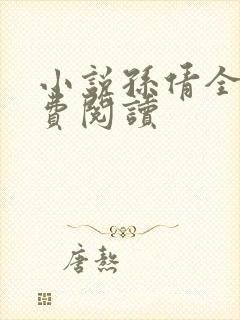 小說孫倩全
費閱讀
唐熬